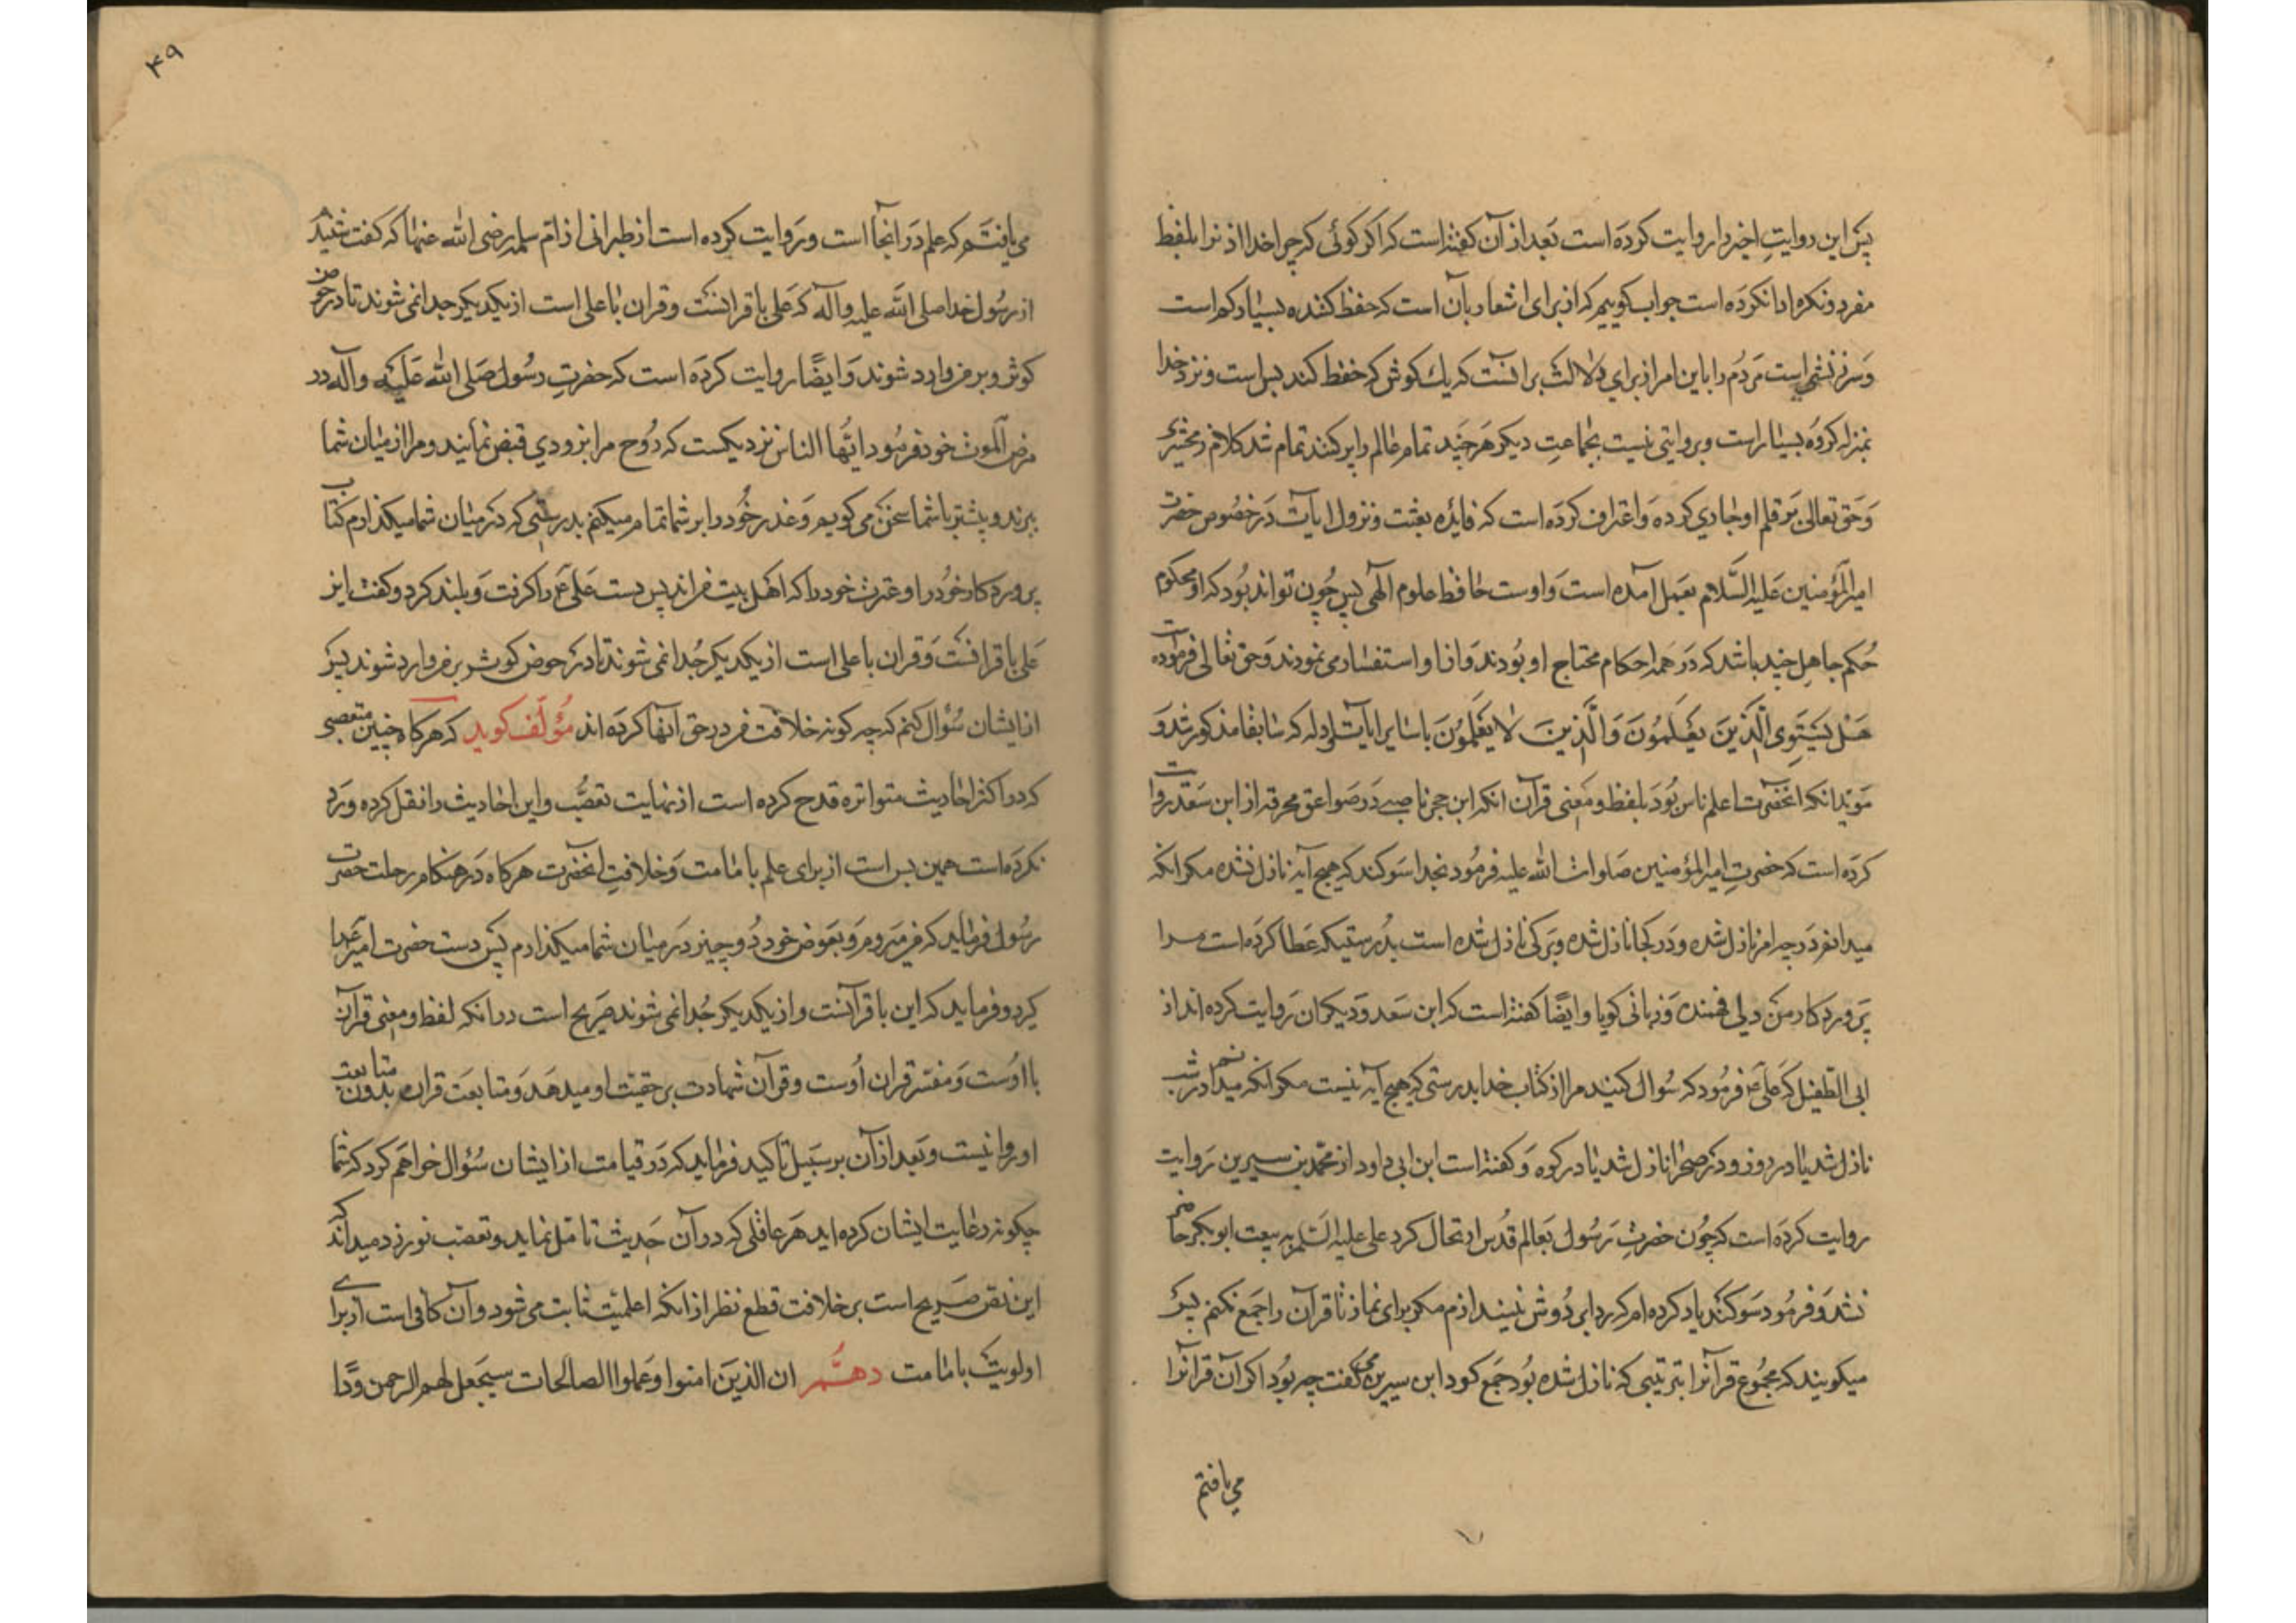 پس این روایت اخیر را روایت کرده است بعد از آن کفته است که اکر کوئی که چرا خدا اذن را بلفظ
مفرد و نکره ادا نکرده است جواب کوییم که از برای اشعار بآن است که حفظ کننده بسیار کم است
و سرزنشی است مردم را باین امر از برای دلالت بر انست که یك کوش که حفظ کند بس است و نزد خدا
بمنزله کروه بسیار است و پروایی نیست بجماعت دیکر هر چند تمام عالم را پر کنند تمام شد کلام زمخشری
و حق تعالی بر قلم او جاری کرده و اعتراف کرده است که فایده بعثت و نزول ایات در خصوص حضرت
امیر المؤمنین علیه السلام بعمل آمده است و اوست حافظ علوم الهی پس چون تواند بود که او محکوم
حکم جاهل چند باشد که در همه احکام محتاج او بودند و از او استفسار می نمودند و حق تعالی فرموده است
هل یستوی الذین یعلمون و الذین لا یعلمون با سایر ایات و ادله که سابقا مذکور شد و
موید انکه انحضرت اعلم ناس بود بلفظ و معنی قرآن انکه ابن حجر ناصبی در صواعق محرقه از ابن سعد روایت
کرده است که حضرت امیر المؤمنین صلوات الله علیه فرمود بخدا سوکند که هیچ آیه نازل نشده مکر انکه
میدانم در چه امر نازل شده و در کجا نازل شده و بر کی نازل شده است بدرستیکه عطا کرده است مرا
پروردکار من دلی فهمنده و زبانی کویا و ایضا کفته است که ابن سعد و دیکران روایت کرده اند از
ابی الطفیل که علی ع فرمود که سؤال کنید مرا از کتاب خدا بدرستی که هیچ آیه نیست مکر انکه میدانم در شب
نازل شد یا در روز و در صحرا نازل شد یا در کوه و کفته است ابن ابی داود از محمد بن سیرین روایت
روایت کرده است که چون حضرت رسول بعالم قدس ارتحال کرد علی علیه السلم به بیعت ابو بکر حاضر
نشد و فرمود سوکند یاد کرده ام که ردا بر دوش نیندازم مکر برای نماز تا قرآن را جمع نکنم پس
میکویند که مجموع قرآنرا بترتیبی که نازل شده بود جمع کرد ابن سیرین کفت چه بود اکر آن قرانرا
می یافتم
۴۹
می یافتم که علم در انجا است و روایت کرده است از طبرانی از ام سلمه رضی الله عنها که کفت شنیدم
از رسول خدا صلی الله علیه و آله که علی با قرانست و قران با علی است از یکدیکر جدا نمی شوند تا در حوض
کوثر بر من وارد شوند و ایضا روایت کرده است که حضرت رسول صلی الله علیه و آله در
مرض الموت خود فرمود ایها الناس نزدیکست که روح مرا بزودی قبض نمایند و مرا از میان شما
ببرند و پیشتر با شما سخن می کویم و عذر خود را بر شما تمام میکنم بدرستی که در میان شما میکذارم کتاب
پروردکار خود را و عترت خود را که اهل بیت من اند پس دست علی ع را کرفت و بلند کرد و کفت این
علی با قرانست و قران با علی است از یکدیکر جدا نمی شوند تا در حوض کوثر بر من وارد شوند پس
از ایشان سؤال کنم که چه کونه خلافت من در حق آنها کرده اند مؤلف کوید که هرکاه چنین متعصبی
که در اکثر احادیث متواتره قدح کرده است از نهایت تعصب و این احادیث را نقل کرده و رد
نکرده است همین بس است از برای علم با مامت و خلافت انحضرت هرکاه در هنکام رحلت حضرت
رسول فرماید که من میروم و بعوض خود دو چیز در میان شما میکذارم پس دست حضرت امیر ع را
کیرد و فرماید که این با قرآنست و از یکدیکر جدا نمی شوند صریح است در انکه لفظ و معنی قرآن
با اوست و مفسر قران اوست و قرآن شهادت بر حقیت او میدهد و متابعت قران بدون متابعت
او روا نیست و بعد از آن بر سبیل تاکید فرماید که در قیامت از ایشان سؤال خواهم کرد که شما
چکونه رعایت ایشان کرده اید هر عاقلی که در آن حدیث تامل نماید و تعصب نورزد میداند که
این نص صریح است بر خلافت قطع نظر از انکه اعلمیت ثابت می شود و آن کافی است از برای
اولویت با مامت دهم ان الذین امنوا و عملوا الصالحات سیجعل لهم الرحمن ودا